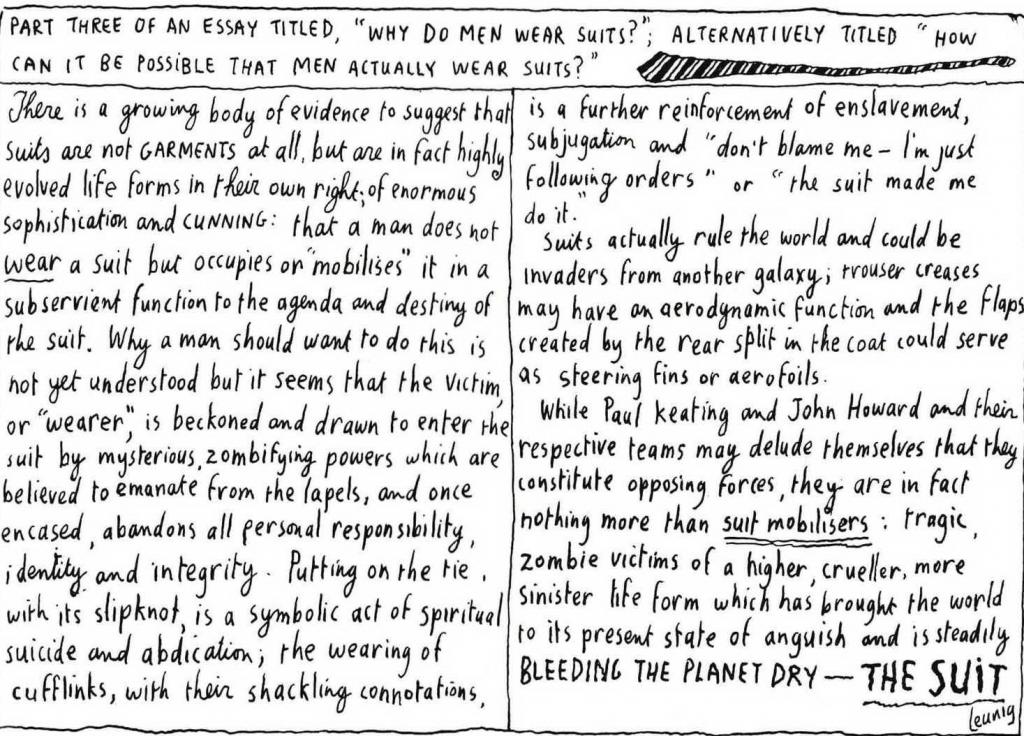 PART THREE OF AN ESSAY TITLED, "WHY DO MEN WEAR SUITS?"; ALTERNATIVELY TITLED "HOW
CAN IT BE POSSIBLE THAT MEN ACTUALLY WEAR SUITS?"
There is a growing body of evidence to suggest that
suits are not GARMENTS at all, but are in fact highly
evolved life forms in their own right; of enormous
sophistication and CUNNING: that a man does not
wear a suit but occupies or "mobilises" it in a
subservient function to the agenda and destiny of
the suit. Why a man should want to do this is
not yet understood but it seems that the victim,
or "wearer", is beckoned and drawn to enter the
suit by mysterious, zombifying powers which are
believed to emanate from the lapels, and once
encased, abandons all personal responsibility,
identity and integrity. Putting on the tie,
with its slipknot, is a symbolic act of spiritual
suicide and abdication; the wearing of
cufflinks, with their shackling connotations,
is a further reinforcement of enslavement,
subjugation and "don't blame me – I'm just
following orders" or "the suit made me
do it."
Suits actually rule the world and could be
invaders from another galaxy; trouser creases
may have an aerodynamic function and the flaps
created by the rear split in the coat could serve
as steering fins or aerofoils.
While Paul Keating and John Howard and their
respective teams may delude themselves that they
constitute opposing forces, they are in fact
nothing more than suit mobilisers: tragic,
zombie victims of a higher, crueller, more
sinister life form which has brought the world
to its present state of anguish and is steadily
BLEEDING THE PLANET DRY — THE SUIT
Leunig